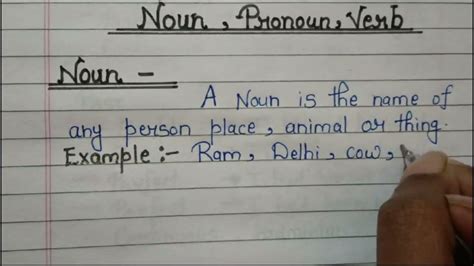 Noun, Pronoun, Verb
Noun -
A Noun is the name of
any person place, animal or thing.
Example :- Ram, Delhi, cow,